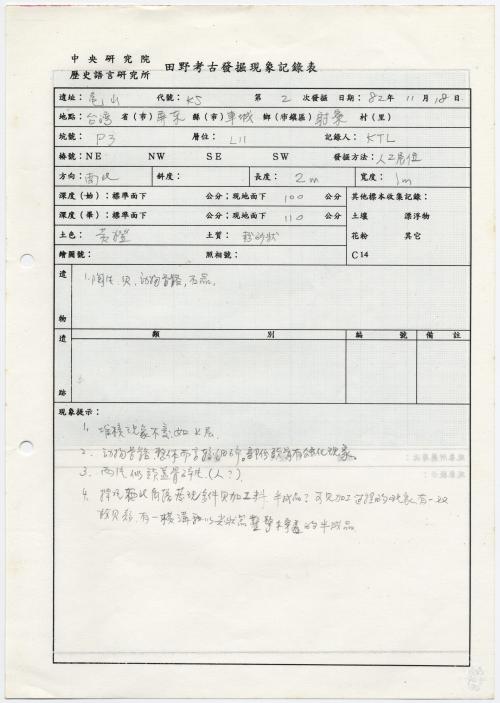 中央研究院
歷史語言研究所
田野考古發掘現象記錄表
遺址：龜山 代號：KS 第 2 次發掘 日期：82年11月18日
地點：台灣省(市)屏東縣(市)車城鄉(市鎮區)射寮村(里)
坑號：P3 層位：L11 記錄人：KTL
樁號：NE NW SE SW 發掘方法：人工層位
方向：南北 斜度： 長度：2m 寬度：1m
深度(始)：標準面下 公分；現地面下 100 公分 其他標本收集記錄：
深度(畢)：標準面下 公分；現地面下 110 公分 土壤 漂浮物
土色：黃橙 土質：粉砂狀 花粉 其它
繪圖號： 照相號： C14
遺物
1.陶片.貝.動物骨骼,石器.
遺跡
類別 編號 備註
現象提示：
1. 堆積現象不變,如上层.
2. 动物骨骼 部份 有 化現象.
3. 兩片似頭蓋骨碎片(人?).
4. 貝加工料.半成品?可見加工 有一
有一橫溝 的半成品